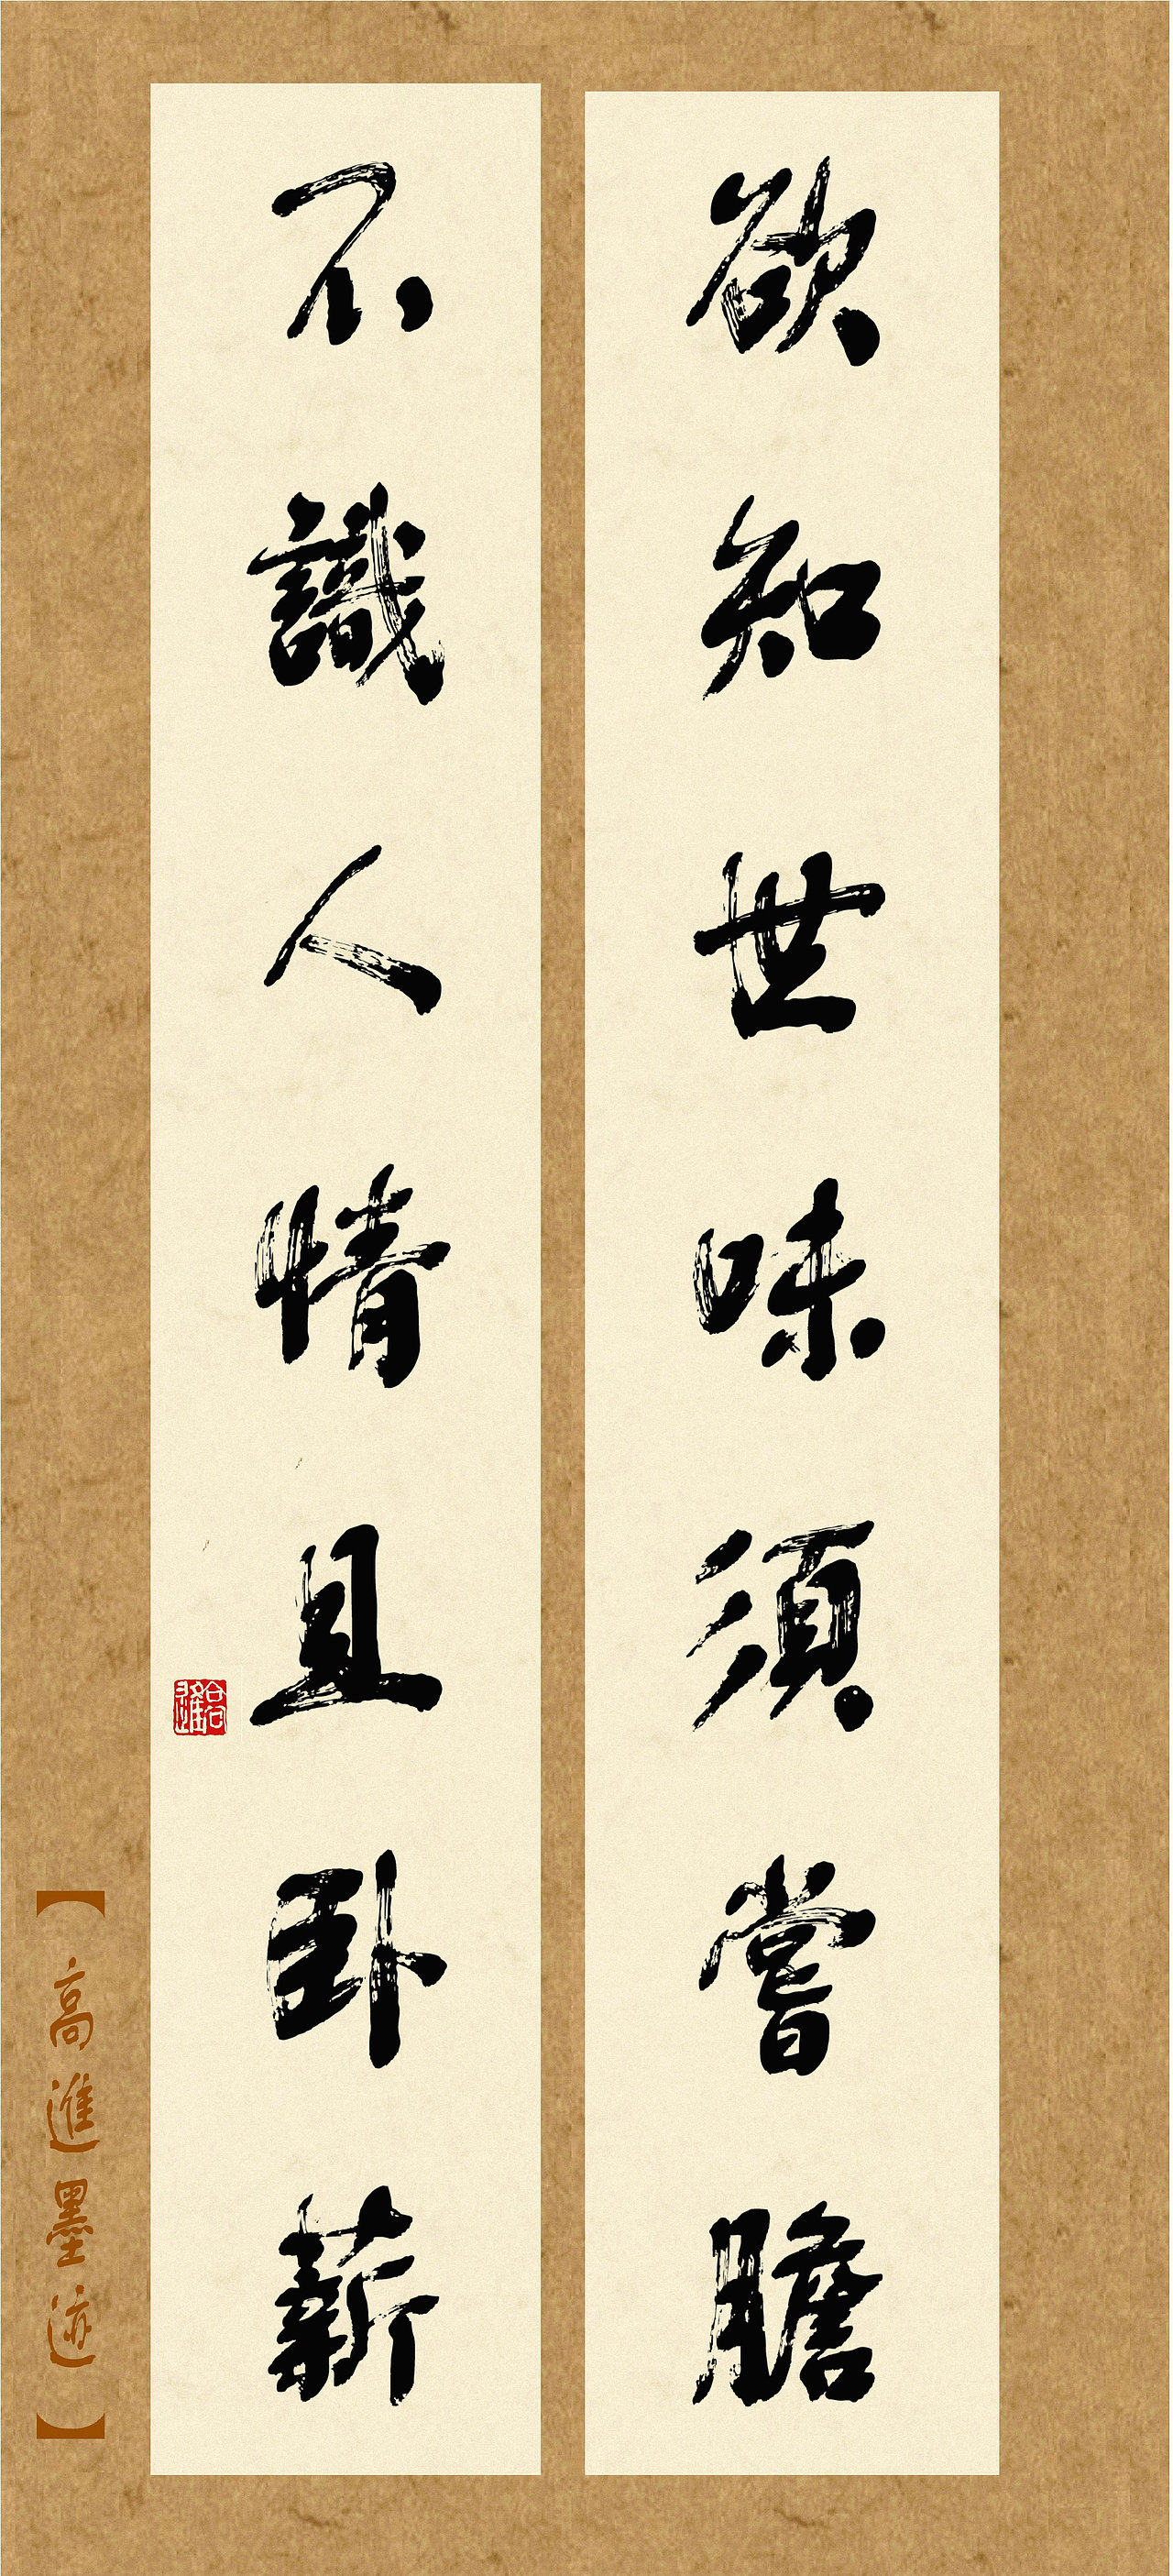 欲知世味須嘗膽
不識人情且卧薪
【高進墨迹】